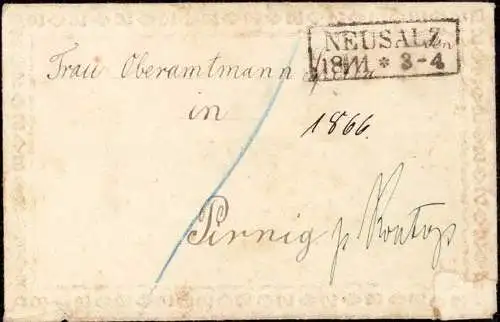 NEUSALZ
18/11 * 3-4
Frau Oberamtmann
in
1866.
Pirnig p. Kontop